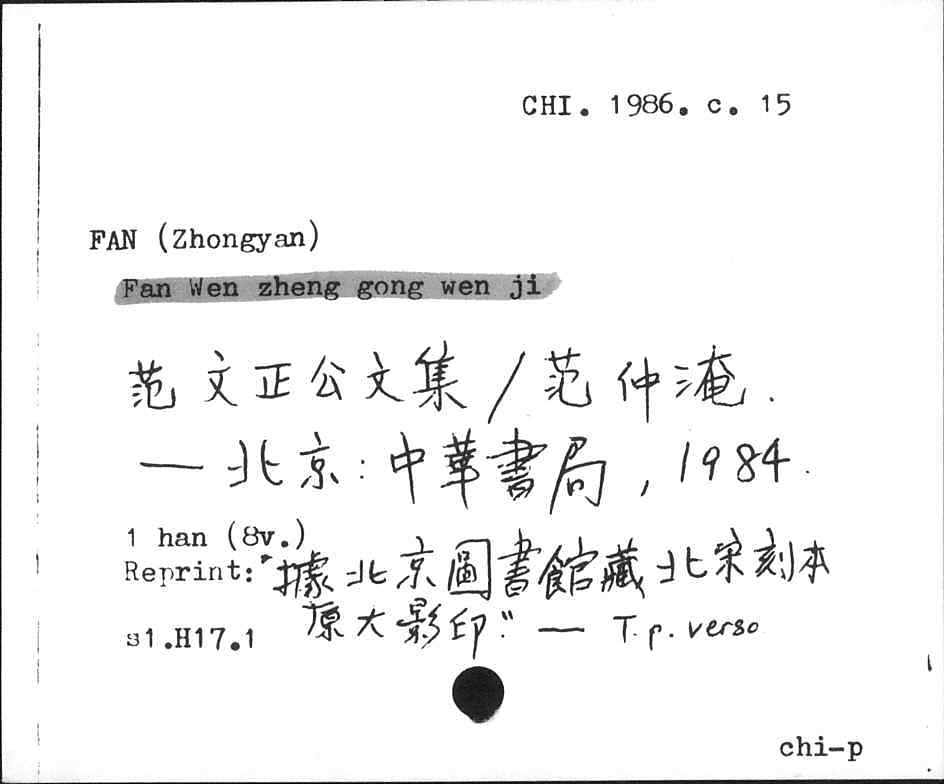 CHI. 1986. c. 15
FAN (Zhongyan)
Fan Wen zheng gong wen ji
范文正公文集 / 范仲淹.
— 北京: 中華書局, 1984.
1 han (8v.)
Reprint: "據北京圖書館藏北宋刻本
原大影印" — T.p. verso
s1.H17.1
chi-p